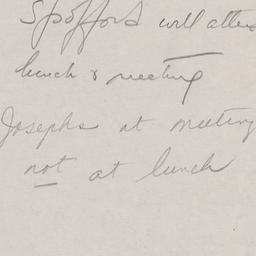 Spofford will atten
lunch & meeting
Josephs at meeting
not at lunch